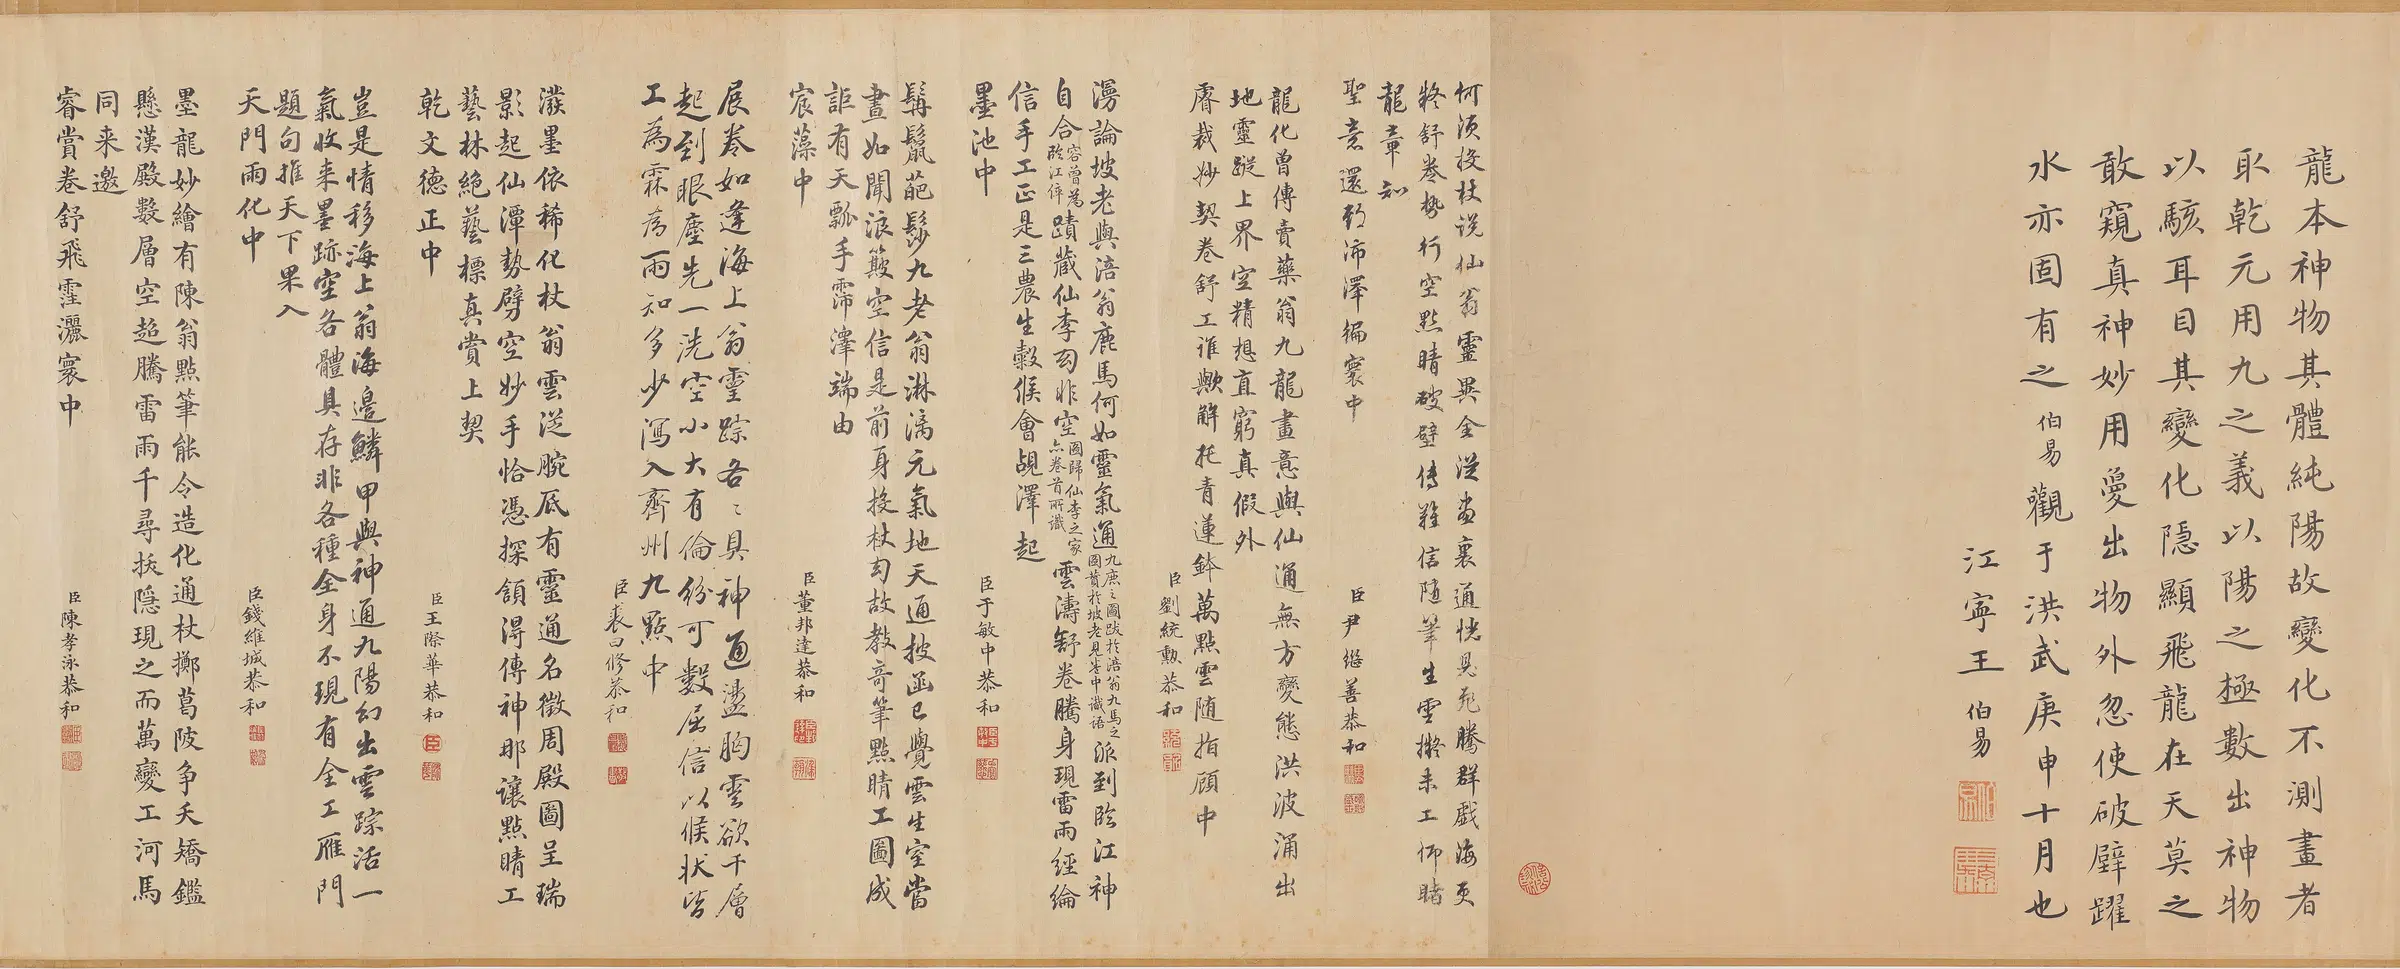 龍本神物其體純陽故變化不測畫者
取乾元用九之義以陽之極數出神物
以駭耳目其變化隱顯飛龍在天莫之
敢窺真神妙用爰出物外忽使破壁躍
水亦固有之伯易觀于洪武庚申十月也
江寧王伯易
何須投杖説仙翁靈異全從畫裏通恍見飛騰群戲海更
將舒卷勢行空點睛破壁傳難信随筆生雲擬未工仰睹
龍章知
聖意還期沛澤徧寰中
臣尹繼善恭和
龍化曾傳賣藥翁九龍畫意與仙通無方變態洪波涌出
地靈蹤上界空精想直窮真假外
睿裁妙契卷舒工誰歟解托青蓮鉢萬點雲随指顧中
臣劉統勳恭和
漫論坡老與涪翁鹿馬何如靈氣通九鹿之圖跋於涪翁九馬之圖贊於坡老見卷中識語派到臨江神
自合容曾為臨江倅蹟藏仙李勾非空圖歸仙李之家亦卷首所識雲濤舒卷騰身現雷雨經綸
信手工正是三農生穀候會覘澤起
墨池中
臣于敏中恭和
髯鬣葩髿九老翁淋漓元氣地天通披函已覺雲生室當
晝如聞浪簸空信是前身投杖勾故教奇筆點睛工圖成
詎有天瓢手霈澤端由
宸藻中
臣董邦達恭和
展卷如逢海上翁靈踪各各具神通盪胸雲欲千層
起到眼塵先一洗空小大有倫份可數屈信以候狀皆
工為霖为雨知多少瀉入齊州九點中
臣裘曰修恭和
潑墨依稀化杖翁雲從腕底有靈通名徵周殿圖呈瑞
影起仙潭勢劈空妙手恰憑探頷得傳神那讓點睛工
藝林絶藝標真賞上契
乾文德正中
臣王際華恭和
豈是情移海上翁海邊鱗甲與神通九陽幻出雲踪活一
氣收来墨跡空各體具存非各種全身不現有全工雁門
題句推天下果入
天門雨化中
臣錢維城恭和
墨龍妙繪有陳翁點筆能令造化通杖擲葛陂争夭矯鑑
懸漢殿數層空超騰雷雨千尋拔隱現之而萬變工河馬
同来邀
睿賞卷舒飛霔灑寰中
臣陳孝泳恭和